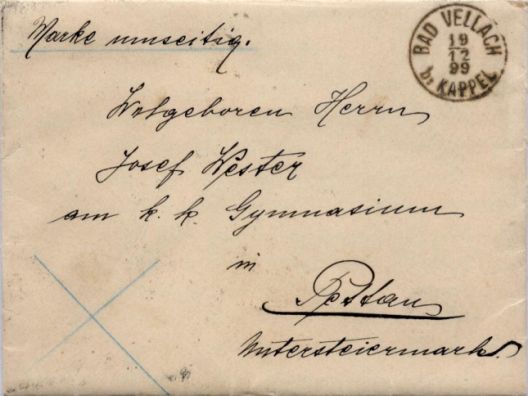 Marke umseitig.
BAD VELLACH
19
12
99
b. KAPPEL
Wolgeboren Herrn
Josef Wester
am k. k. Gymnasium
in
Pettau
Untersteiermark.